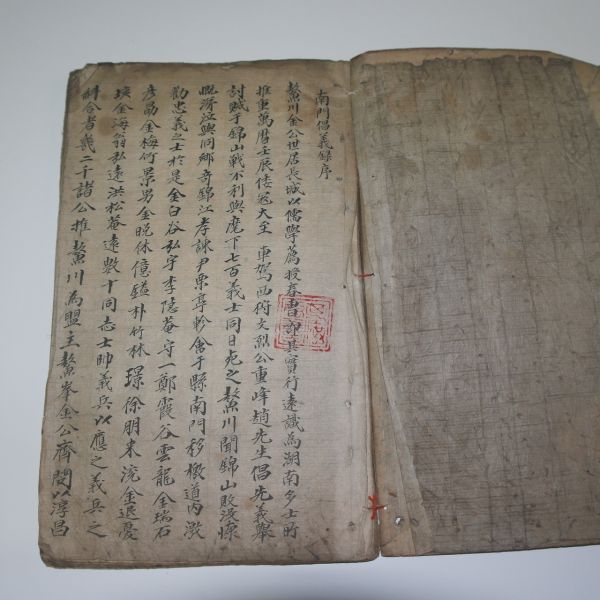 南門倡義錄序
鰲川金公世居長城以儒學薦授春曹郎其實行遠識為湖南多士所
推重萬曆壬辰倭寇大至 車駕西狩文烈公重峰趙先生倡先義舉
討賊于錦山戰不利與麾下七百義士同日死之鰲川聞錦山敗沒慷
慨濟泣與同鄉奇錦江孝諫尹栗亭軫會于縣南門移檄道內激
勸忠義之士於是金白谷弘宇李隱菴守一鄭霞谷雲龍金瑞石
彥勗金梅竹景男金晚休億鎰朴竹林璟徐朋來流金退憂
埉金海翁弘遠洪松菴遠數十同志士帥義兵以應之義兵之
糾合者幾二千諸公推鰲川為盟主鰲峯金公齊閔以淳昌